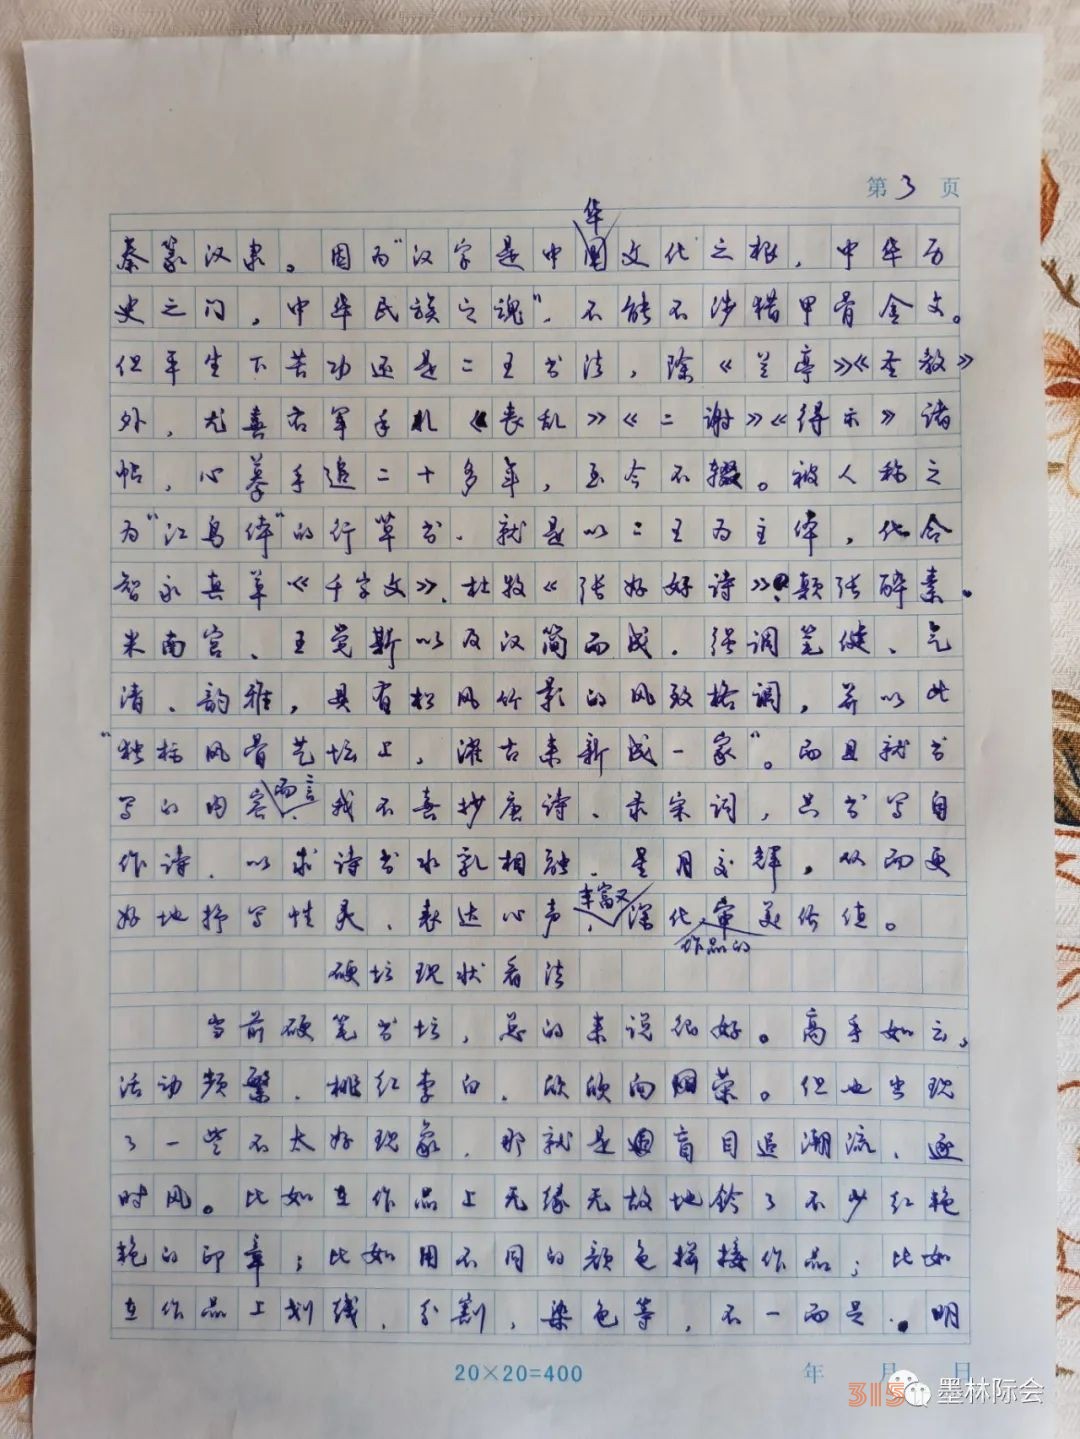 第3页
华
秦篆汉隶。因为"汉字是中国文化之根,中华历
史之门,中华民族之魂",不能不涉猎甲骨金文。
但平生下苦功还是二王书法,除《兰亭》《圣教》
外,尤喜右军手札《丧乱》《二谢》《得示》诸
帖,心摹手追二十多年,至今不辍。被人称之
为"江鸟体"的行草书,就是以二王为主体,化合
智永真草《千字文》、杜牧《张好好诗》、颠张醉素、
米南宫、王觉斯以及汉简而成。强调笔健、气
清、韵雅,具有松风竹影的风致格调,并以此
"独标风骨艺坛上,濯古来新成一家"。而且就书
写的内容而言,我不喜抄唐诗、录宋词,只书写自
作诗,以求诗书水乳相融,星月交辉,从而更
好地抒写性灵、表达心声,丰富又深化作品的审美价值。
硬坛现状看法
当前硬笔书坛,总的来说很好。高手如云,
活动频繁,桃红李白,欣欣向荣。但也出现
了一些不太好现象,那就是盲目追潮流、逐
时风。比如在作品上无缘无故地钤了不少红艳
艳的印章;比如用不同的颜色拼接作品;比如
在作品上划线,分割,染色等,不一而足。明
20×20=400 年 月 日
315 墨林际会